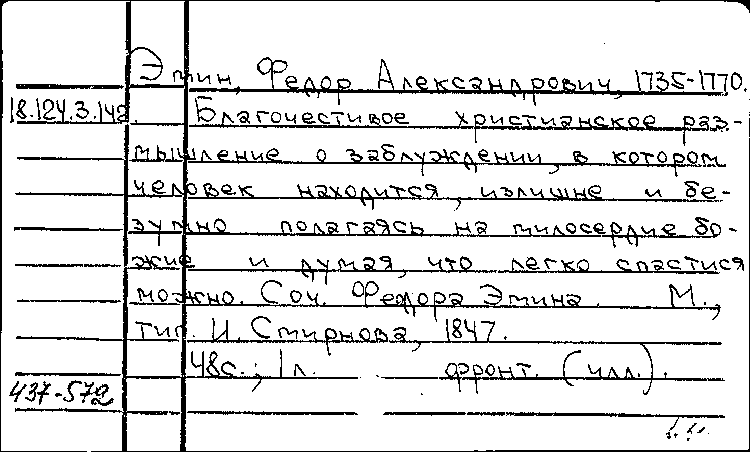 Эмин, Федор Александрович, 1735-1770.
18.124.3.142. Благочестивое христианское раз-
мышление о заблуждении, в котором
человек находится, излишне и бе-
зумно полагаясь на милосердие бо-
жие и думая, что легко спастися
можно. Соч. Федора Эмина. М.,
тип. И. Смирнова, 1847.
48с.; 1л. фронт. (илл.).
437-572